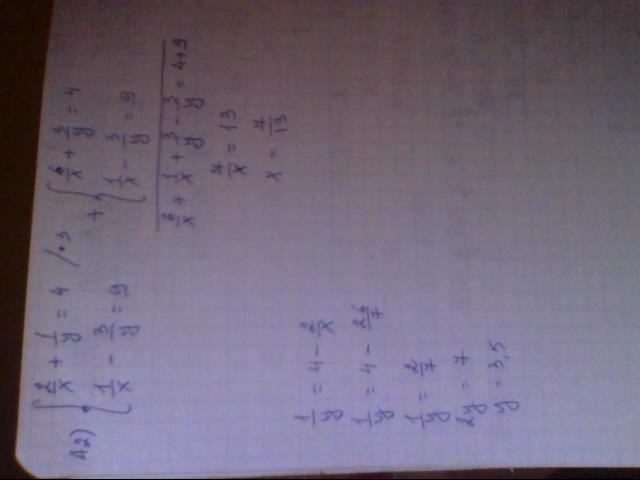 A2) { 2/x + 1/y = 4 /·3
{ 1/x - 3/y = 9
+ { 6/x + 3/y = 4
{ 1/x - 3/y = 9
6/x + 1/x + 3/y - 3/y = 4+9
7/x = 13
x = 7/13
1/y = 4 - 2/x
1/y = 4 - 26/7
1/y = 2/7
2y = 7
y = 3,5